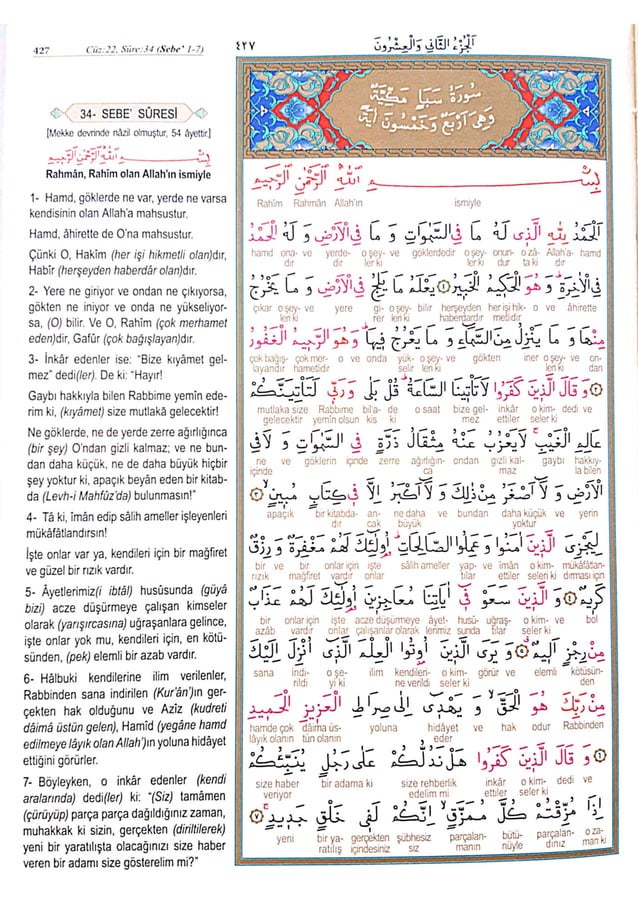 427 Cüz:22, Sûre:34 (Sebe' 1-7)
34- SEBE' SÛRESİ
[Mekke devrinde nâzil olmuştur, 54 âyettir.]
بِسْمِ اللهِ الرَّحْمٰنِ الرَّحِيمِ
Rahmân, Rahîm olan Allah'ın ismiyle
1- Hamd, göklerde ne var, yerde ne varsa
kendisinin olan Allah'a mahsustur.
Hamd, âhirette de O'na mahsustur.
Çünki O, Hakîm (her işi hikmetli olan)dır,
Habîr (herşeyden haberdâr olan)dır.
2- Yere ne giriyor ve ondan ne çıkıyorsa,
gökten ne iniyor ve onda ne yükseliyor-
sa, (O) bilir. Ve O, Rahîm (çok merhamet
eden)dir, Gafûr (çok bağışlayan)dır.
3- İnkâr edenler ise: “Bize kıyâmet gel-
mez” dedi(ler). De ki: “Hayır!
Gaybı hakkıyla bilen Rabbime yemîn ede-
rim ki, (kıyâmet) size mutlaka gelecektir!
Ne göklerde, ne de yerde zerre ağırlığınca
(bir şey) O'ndan gizli kalmaz; ve ne bun-
dan daha küçük, ne de daha büyük hiçbir
şey yoktur ki, apaçık beyân eden bir kitab-
da (Levh-i Mahfûz'da) bulunmasın!”
4- Tâ ki, îmân edip sâlih ameller işleyenleri
mükâfâtlandırsın!
İşte onlar var ya, kendileri için bir mağfiret
ve güzel bir rızık vardır.
5- Âyetlerimiz(i ibtâl) husûsunda (gûyâ
bizi) acze düşürmeye çalışan kimseler
olarak (yarışırcasına) uğraşanlara gelince,
işte onlar yok mu, kendileri için, en kötü-
sünden, (pek) elemli bir azab vardır.
6- Hâlbuki kendilerine ilim verilenler,
Rabbinden sana indirilen (Kur'ân')ın ger-
çekten hak olduğunu ve Azîz (kudreti
dâimâ üstün gelen), Hamîd (yegâne hamd
edilmeye lâyık olan Allah')ın yoluna hidâyet
ettiğini görürler.
7- Böyleyken, o inkâr edenler (kendi
aralarında) dedi(ler) ki: “(Siz) tamâmen
(çürüyüp) parça parça dağıldığınız zaman,
muhakkak ki sizin, gerçekten (diriltilerek)
yeni bir yaratılışta olacağınızı size haber
veren bir adamı size gösterelim mi?”
اَلْجُزْءُ الثَّانِي وَالْعِشْرُونَ ٤٢٧
سُورَةُ سَبَإٍ مَكِّيَّةٌ
وَهِيَ اَرْبَعٌ وَخَمْسُونَ اٰيَةً
بِسْمِ اللهِ الرَّحْمٰنِ الرَّحِيمِ
Rahîm Rahmân Allah'ın ismiyle
اَلْحَمْدُ لِلّٰهِ الَّذِي لَهُ مَا فِي السَّمٰوَاتِ وَ مَا فِي الْاَرْضِ وَ لَهُ الْحَمْدُ
hamd ona- ve yerde- o şey- ve göklerdedir o şey- onun- o zâ- Allah'a- hamd
dır dir ler ki ler ki dur ta ki dır
فِي الْاٰخِرَةِ وَ هُوَ الْحَكِيمُ الْخَبِيرُ ۝١ يَعْلَمُ مَا يَلِجُ فِي الْاَرْضِ وَ مَا يَخْرُجُ
çıkar o şey- ve yere gi- o şey- bilir herşeyden her işi hik- o ve âhirette
ler ki rer ler ki haberdardır metlidir
مِنْهَا وَ مَا يَنْزِلُ مِنَ السَّمَٓاءِ وَ مَا يَعْرُجُ فِيهَا وَهُوَ الرَّحِيمُ الْغَفُورُ
çok bağış- çok mer- o ve onda yük- o şey- ve gökten iner o şey- ve on-
layandır hametidir selir ler ki ler ki dan
۝٢ وَ قَالَ الَّذِينَ كَفَرُوا لَا تَأْتِينَا السَّاعَةُ قُلْ بَلٰى وَرَبِّي لَتَأْتِيَنَّكُمْ
mutlaka size Rabbime bil'a- de o saat bize gel- inkâr o kim- dedi ve
gelecektir yemîn olsun kis ki mez ettiler seler ki
عَالِمِ الْغَيْبِ لَا يَعْزُبُ عَنْهُ مِثْقَالُ ذَرَّةٍ فِي السَّمٰوَاتِ وَ لَا فِي
ne ve göklerin içinde zerre ağırlığın- ondan gizli kal- gaybı hakkıy-
içinde ca maz la bilen
الْاَرْضِ وَ لَٓا اَصْغَرُ مِنْ ذٰلِكَ وَ لَٓا اَكْبَرُ اِلَّا فِي كِتَابٍ مُبِينٍ ۝٣
apaçık bir kitabda- an- ne daha ve bundan daha küçük ve yerin
dır cak büyük yoktur
لِيَجْزِيَ الَّذِينَ اٰمَنُوا وَ عَمِلُوا الصَّالِحَاتِ اُولٰٓئِكَ لَهُمْ مَغْفِرَةٌ وَ رِزْقٌ
bir ve bir onlar için işte sâlih ameller yap- ve îmân o kim- mükâfâtlan-
rızık mağfiret vardır onlar tılar ettiler seler ki dırması için
كَرِيمٌ ۝٤ وَ الَّذِينَ سَعَوْ فِٓي اٰيَاتِنَا مُعَاجِزِينَ اُولٰٓئِكَ لَهُمْ عَذَابٌ
bir onlar için işte acze düşürmeye âyet- husû- uğraş- o kim- ve bol
azâb vardır onlar çalışanlar olarak lerimiz sunda tılar seler ki
مِنْ رِجْزٍ اَلِيمٌ ۝٥ وَ يَرَى الَّذِينَ اُوتُوا الْعِلْمَ الَّذِٓي اُنْزِلَ اِلَيْكَ
sana indi- o şe- ilim kendileri- o kim- görür ve elemli kötüsün-
rildi yi ki ne verildi seler ki den
مِنْ رَبِّكَ هُوَ الْحَقَّ وَ يَهْدِٓي اِلٰى صِرَاطِ الْعَزِيزِ الْحَمِيدِ
hamde çok dâimâ üs- yoluna hidâyet ve hak odur Rabbinden
lâyık olanın tün olanın eder
۝٦ وَ قَالَ الَّذِينَ كَفَرُوا هَلْ نَدُلُّكُمْ عَلٰى رَجُلٍ يُنَبِّئُكُمْ
size haber bir adama ki size rehberlik inkâr o kim- dedi ve
veriyor edelim mi ettiler seler ki
اِذَا مُزِّقْتُمْ كُلَّ مُمَزَّقٍ اِنَّكُمْ لَفِي خَلْقٍ جَدِيدٍ ۝٧
yeni bir ya- gerçekten şübhesiz parçalan- bütü- parçalan- o za-
ratılış içindesiniz siz manın nüyle dınız man ki